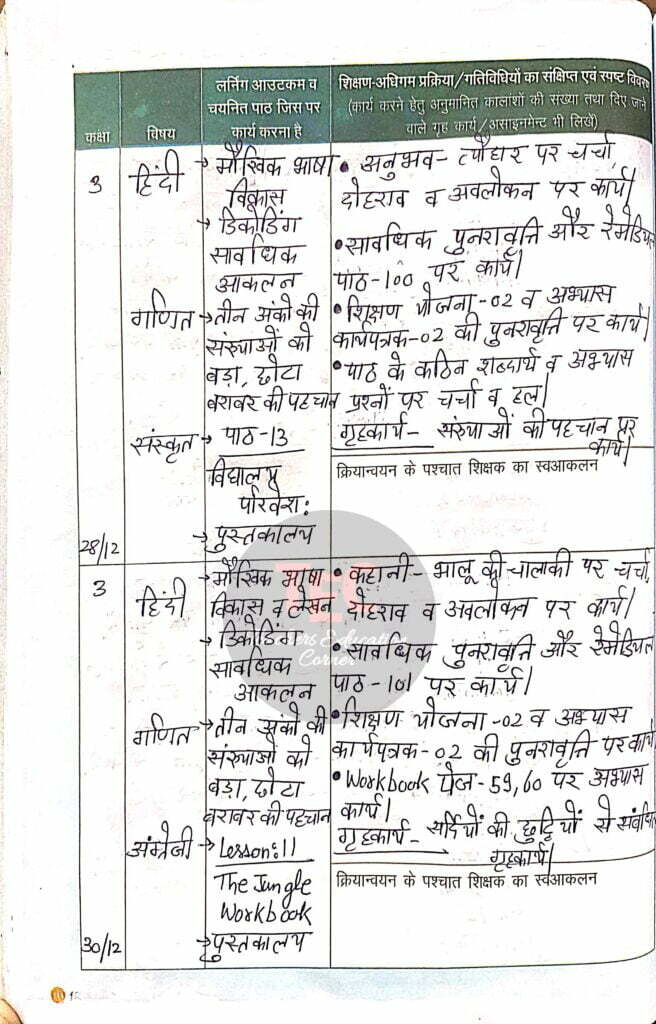 कक्षा
विषय
लर्निंग आउटकम व
चयनित पाठ जिस पर
कार्य करना है
शिक्षण-अधिगम प्रक्रिया/गतिविधियों का संक्षिप्त एवं स्पष्ट विवर
(कार्य करने हेतु अनुमानित कालांशों की संख्या तथा दिए जाने
वाले गृह कार्य/असाइनमेन्ट भी लिखें)
3
हिंदी
→ मौखिक भाषा
विकास
→ डिकोडिंग
सावधिक
आकलन
• अनुभव- त्यौहार पर चर्चा,
दोहराव व अवलोकन पर कार्य।
• सावधिक पुनरावृत्ति और रेमेडियल
पाठ-100 पर कार्य।
गणित
→ तीन अंको की
संख्याओं को
बड़ा, छोटा
बराबर की पहचान
• शिक्षण योजना-02 व अभ्यास
कार्यपत्रक-02 की पुनरावृत्ति पर कार्य।
• पाठ के कठिन शब्दार्थ व अभ्यास
प्रश्नों पर चर्चा व हल।
संस्कृत
→ पाठ-13
विद्यालय
परिवेश:
→ पुस्तकालय
गृहकार्य- संख्याओं की पहचान पर
कार्य।
क्रियान्वयन के पश्चात शिक्षक का स्वआकलन
28/12
3
हिंदी
→ मौखिक भाषा
विकास व लेखन
→ डिकोडिंग
सावधिक
आकलन
• कहानी- भालू की चालाकी पर चर्चा,
दोहराव व अवलोकन पर कार्य।
• सावधिक पुनरावृत्ति और रेमेडियल
पाठ-101 पर कार्य।
गणित
→ तीन अंको की
संख्याओं को
बड़ा, छोटा
बराबर की पहचान
• शिक्षण योजना-02 व अभ्यास
कार्यपत्रक-02 की पुनरावृत्ति पर कार्य
• Workbook पेज-59,60 पर अभ्यास
कार्य।
अंग्रेजी
→ Lesson:11
The Jungle
Workbook
→ पुस्तकालय
गृहकार्य- सर्दियों की छुट्टियों से संबंधि
गृहकार्य।
क्रियान्वयन के पश्चात शिक्षक का स्वआकलन
30/12
TEC
Corner